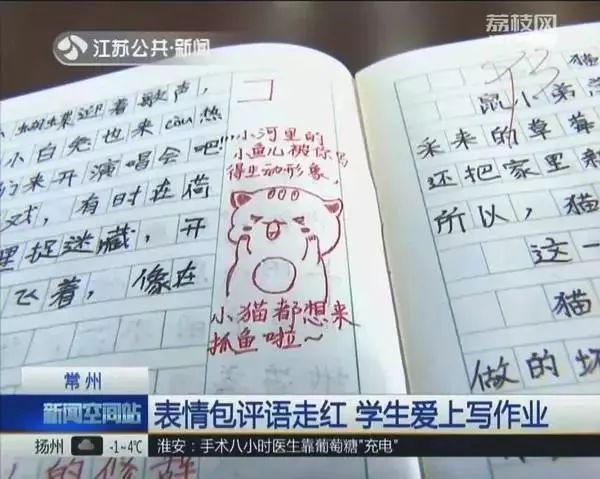 荔枝网
江苏公共·新闻
迎着歌声，
小白兔也来cān热
的来开演唱会吧!
戏，有时在荷
里捉迷藏，开
飞着，像在
小河里的
小鱼儿被你写
得生动形象，
小猫都想来
抓鱼啦～
猫
鼠小弟
采来的草莓
还把家里
所以，猫
这一
猫
做的坏
常州
新闻空间站
表情包评语走红 学生爱上写作业
扬州 -1~4℃ 淮安：手术八小时医生靠葡萄糖"充电"
的修辞